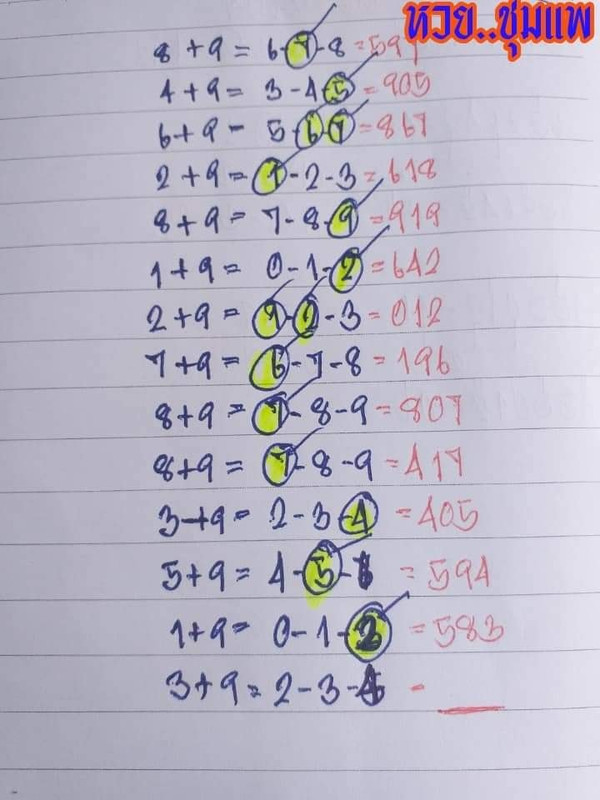 หวย..ชุมแพ
8 + 9 = 6-7-8 = 597
4 + 9 = 3-4-5 = 905
6 + 9 = 5-6-7 = 867
2 + 9 = 1-2-3 = 618
8 + 9 = 7-8-9 = 919
1 + 9 = 0-1-2 = 642
2 + 9 = 1-2-3 = 012
7 + 9 = 6-7-8 = 196
8 + 9 = 7-8-9 = 807
8 + 9 = 7-8-9 = 417
3 + 9 = 2-3-4 = 405
5 + 9 = 4-5- = 594
1 + 9 = 0-1-2 = 583
3 + 9 = 2-3-4 -